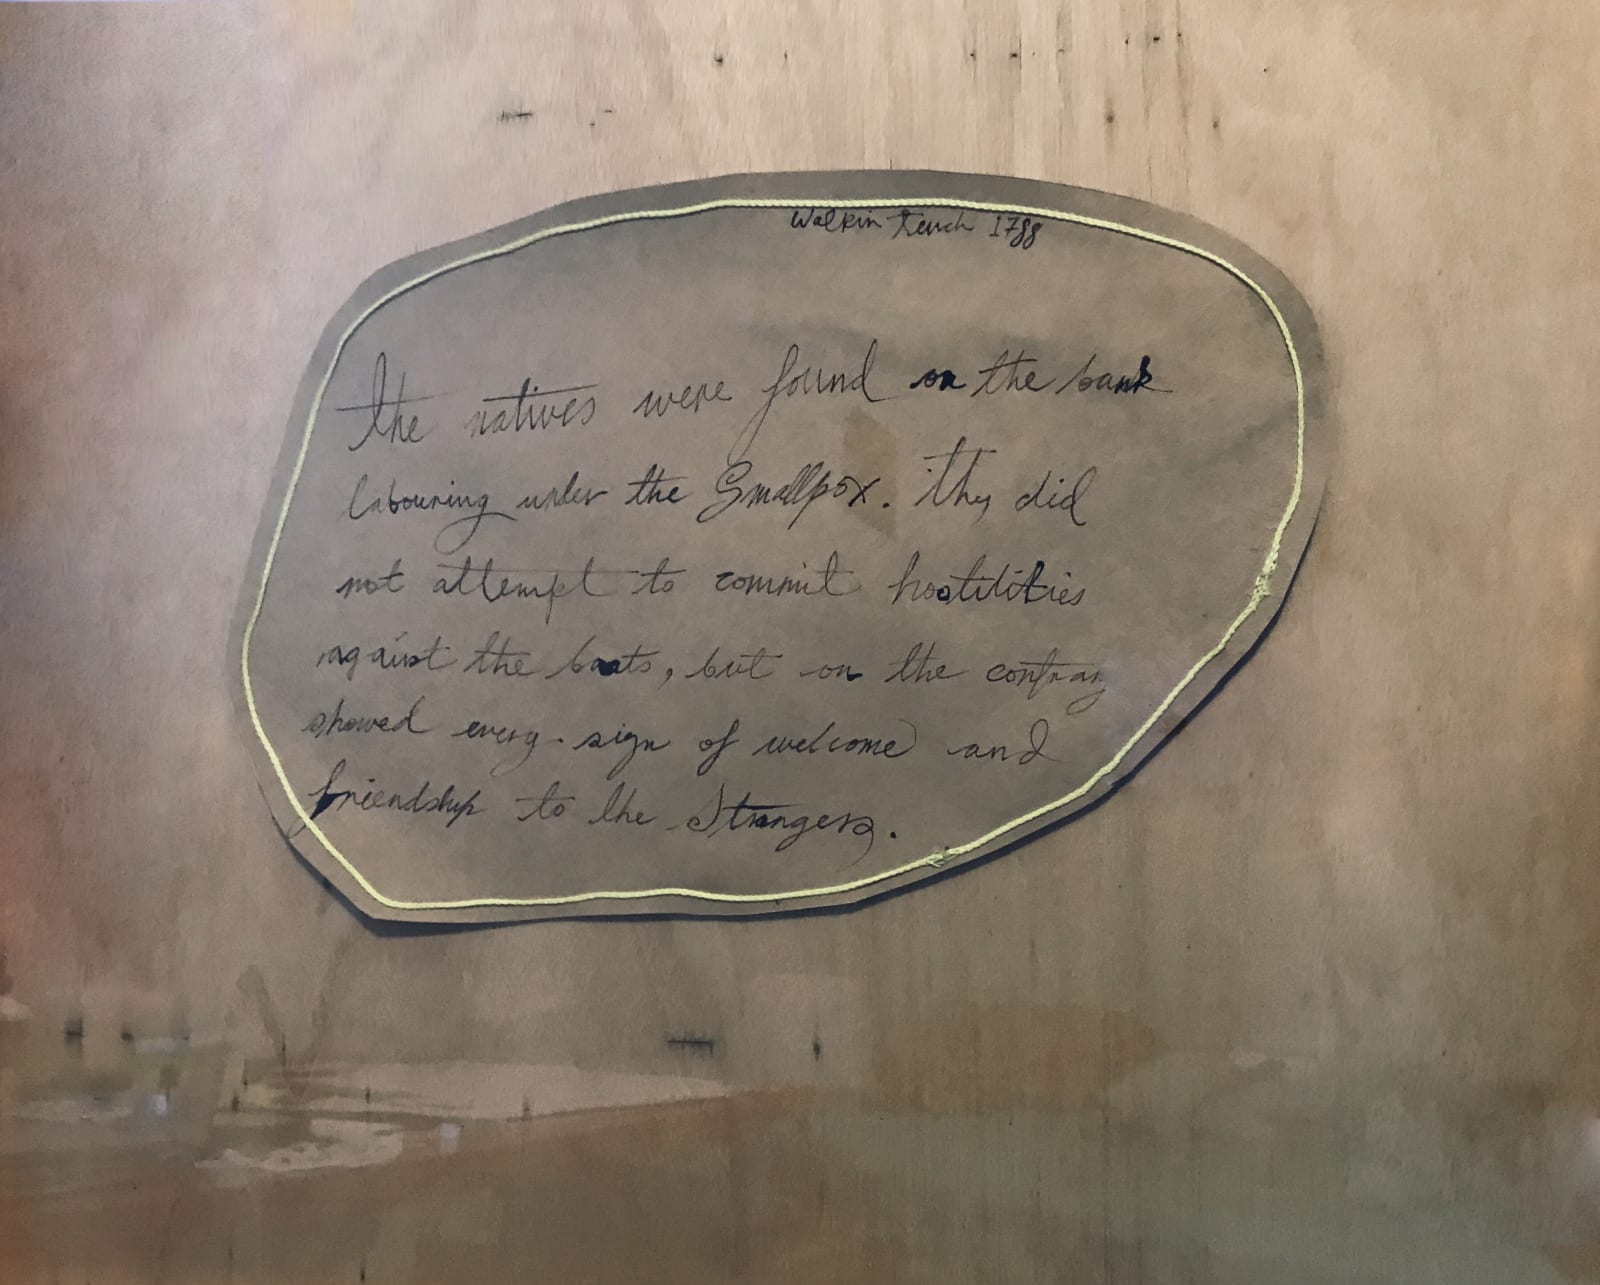 Walkin Tench 1788
The natives were found on the bank
labouring under the Smallpox. They did
not attempt to commit hostilities
against the boats, but on the contrary
showed every sign of welcome and
friendship to the Strangers.